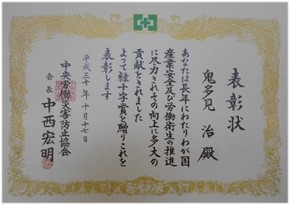 表彰状
鬼多見 治 殿
あなたは長年にわたりわが国
産業安全及び労働衛生の推進
に尽力されその向上に多大の
貢献をされました
よって緑十字賞を贈りこれを
表彰します
平成三十年十月十七日
中央労働災害防止協会
会長 中西宏明